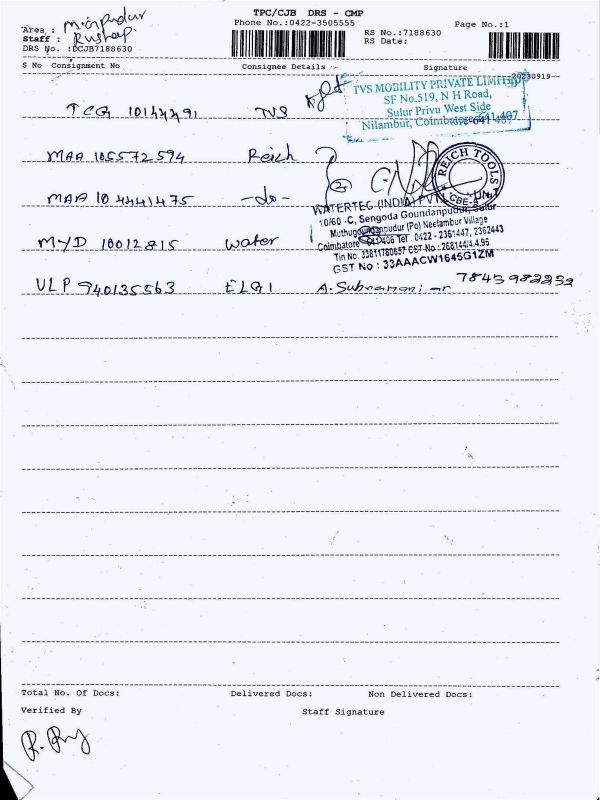 TPC/CJB DRS - CMP
Phone No.:0422-3505555
Page No.:1
Area :
Staff :
DRS No. :DCJB7188630
RS No.:7188630
RS Date:
S No Consignment No Consignee Details Signature
20230919
TVS MOBILITY PRIVATE LIMITED
SF No.519, N H Road,
Sulur Privu West Side
Nilambur, Coimbatore-641 407
TCG 10144291 TVS
MAA 105572594 Reich
REICH TOOLS
CBE-4
UNIT
MAA 104441475 -do-
WATERTEC (INDIA) PVT.
10/60 -C, Sengoda Goundanpudur, Sulur
Muthugoundanpudur (Po) Neelambur Village
Coimbatore - 641406 Tel : 0422 - 2361447, 2362443
Tin No: 33811780657 CST No : 268144/4.4.95
GST No : 33AAACW1645G1ZM
MYD 10012815 Water
VLP 940135563 ELGI A. Subramanian 7845982232
Total No. Of Docs: Delivered Docs: Non Delivered Docs:
Verified By Staff Signature